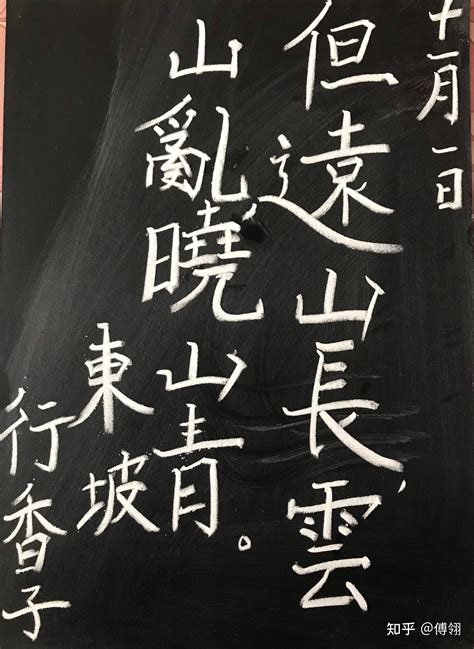 十一月一日
但遠山長，雲
山亂，曉山青。
東坡
行香子
知乎 @傅翎